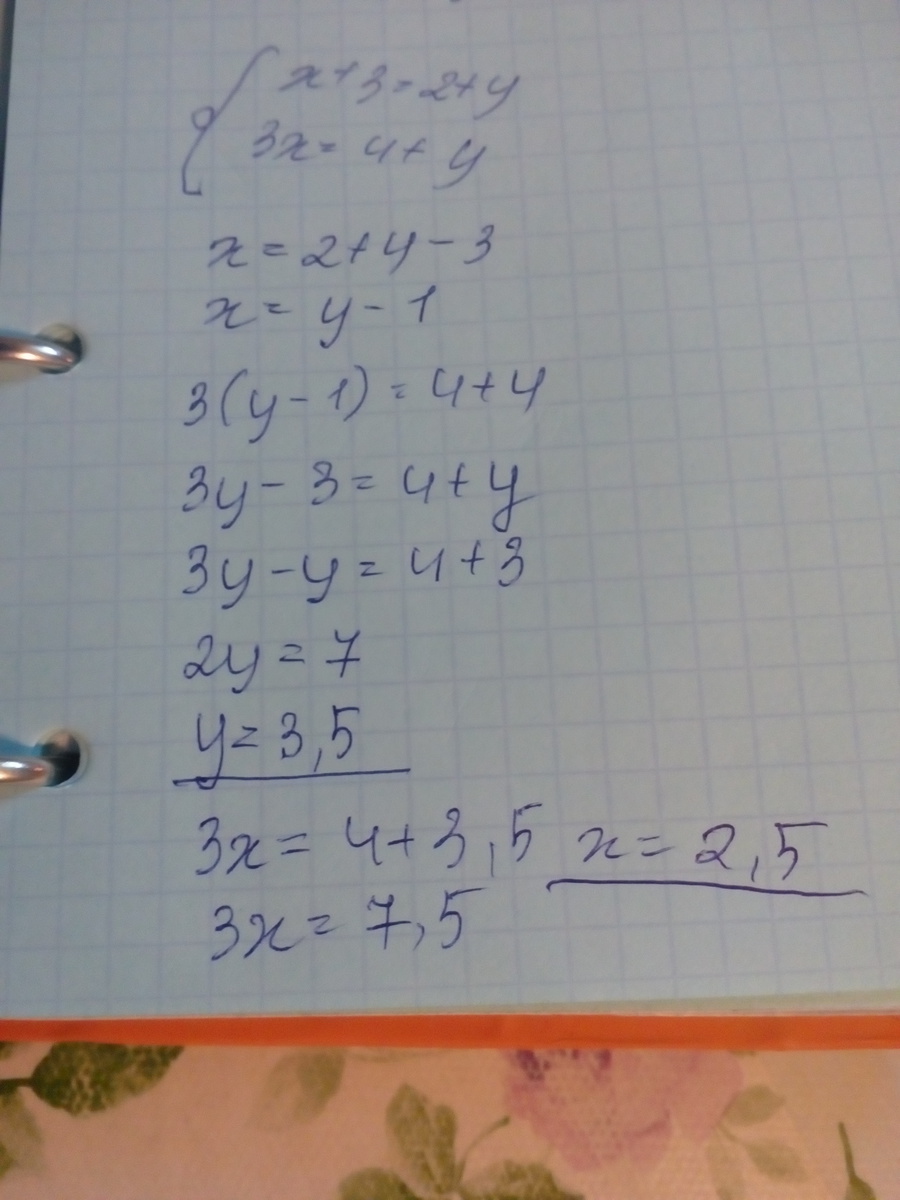 x+3=2+y
3x=4+y
x=2+y-3
x=y-1
3(y-1)=4+y
3y-3=4+y
3y-y=4+3
2y=7
y=3,5
3x=4+3,5 x=2,5
3x=7,5